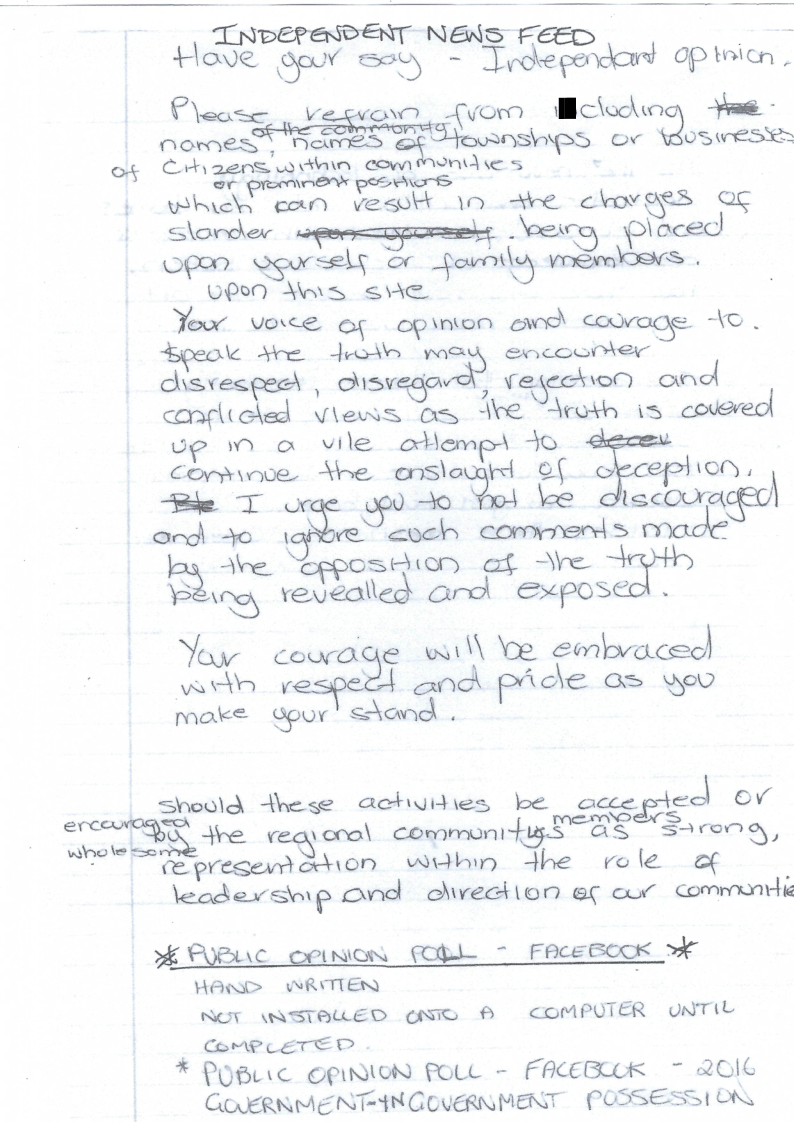 INDEPENDENT NEWS FEED
Have your say - Independant opinion.
Please refrain from cluding
of the community
names, names of townships or businesses
of Citizens within communities
or prominent positions
which can result in the charges of
slander upon yourself being placed
upon yourself or family members.
upon this site
Your voice of opinion and courage to
speak the truth may encounter
disrespect, disregard, rejection and
conflicted views as the truth is covered
up in a vile attempt to
continue the onslaught of deception.
I urge you to not be discouraged
and to ignore such comments made
by the opposition of the truth
being revealled and exposed.
Your courage will be embraced
with respect and pride as you
make your stand.
should these activities be accepted or
encouraged members
by the regional communitys as strong,
wholesome
representation within the role of
leadership and direction of our communitie
* PUBLIC OPINION POLL - FACEBOOK *
HAND WRITTEN
NOT INSTALLED ONTO A COMPUTER UNTIL
COMPLETED.
* PUBLIC OPINION POLL - FACEBOOK - 2016
GOVERNMENT-IN GOVERNMENT POSSESSION